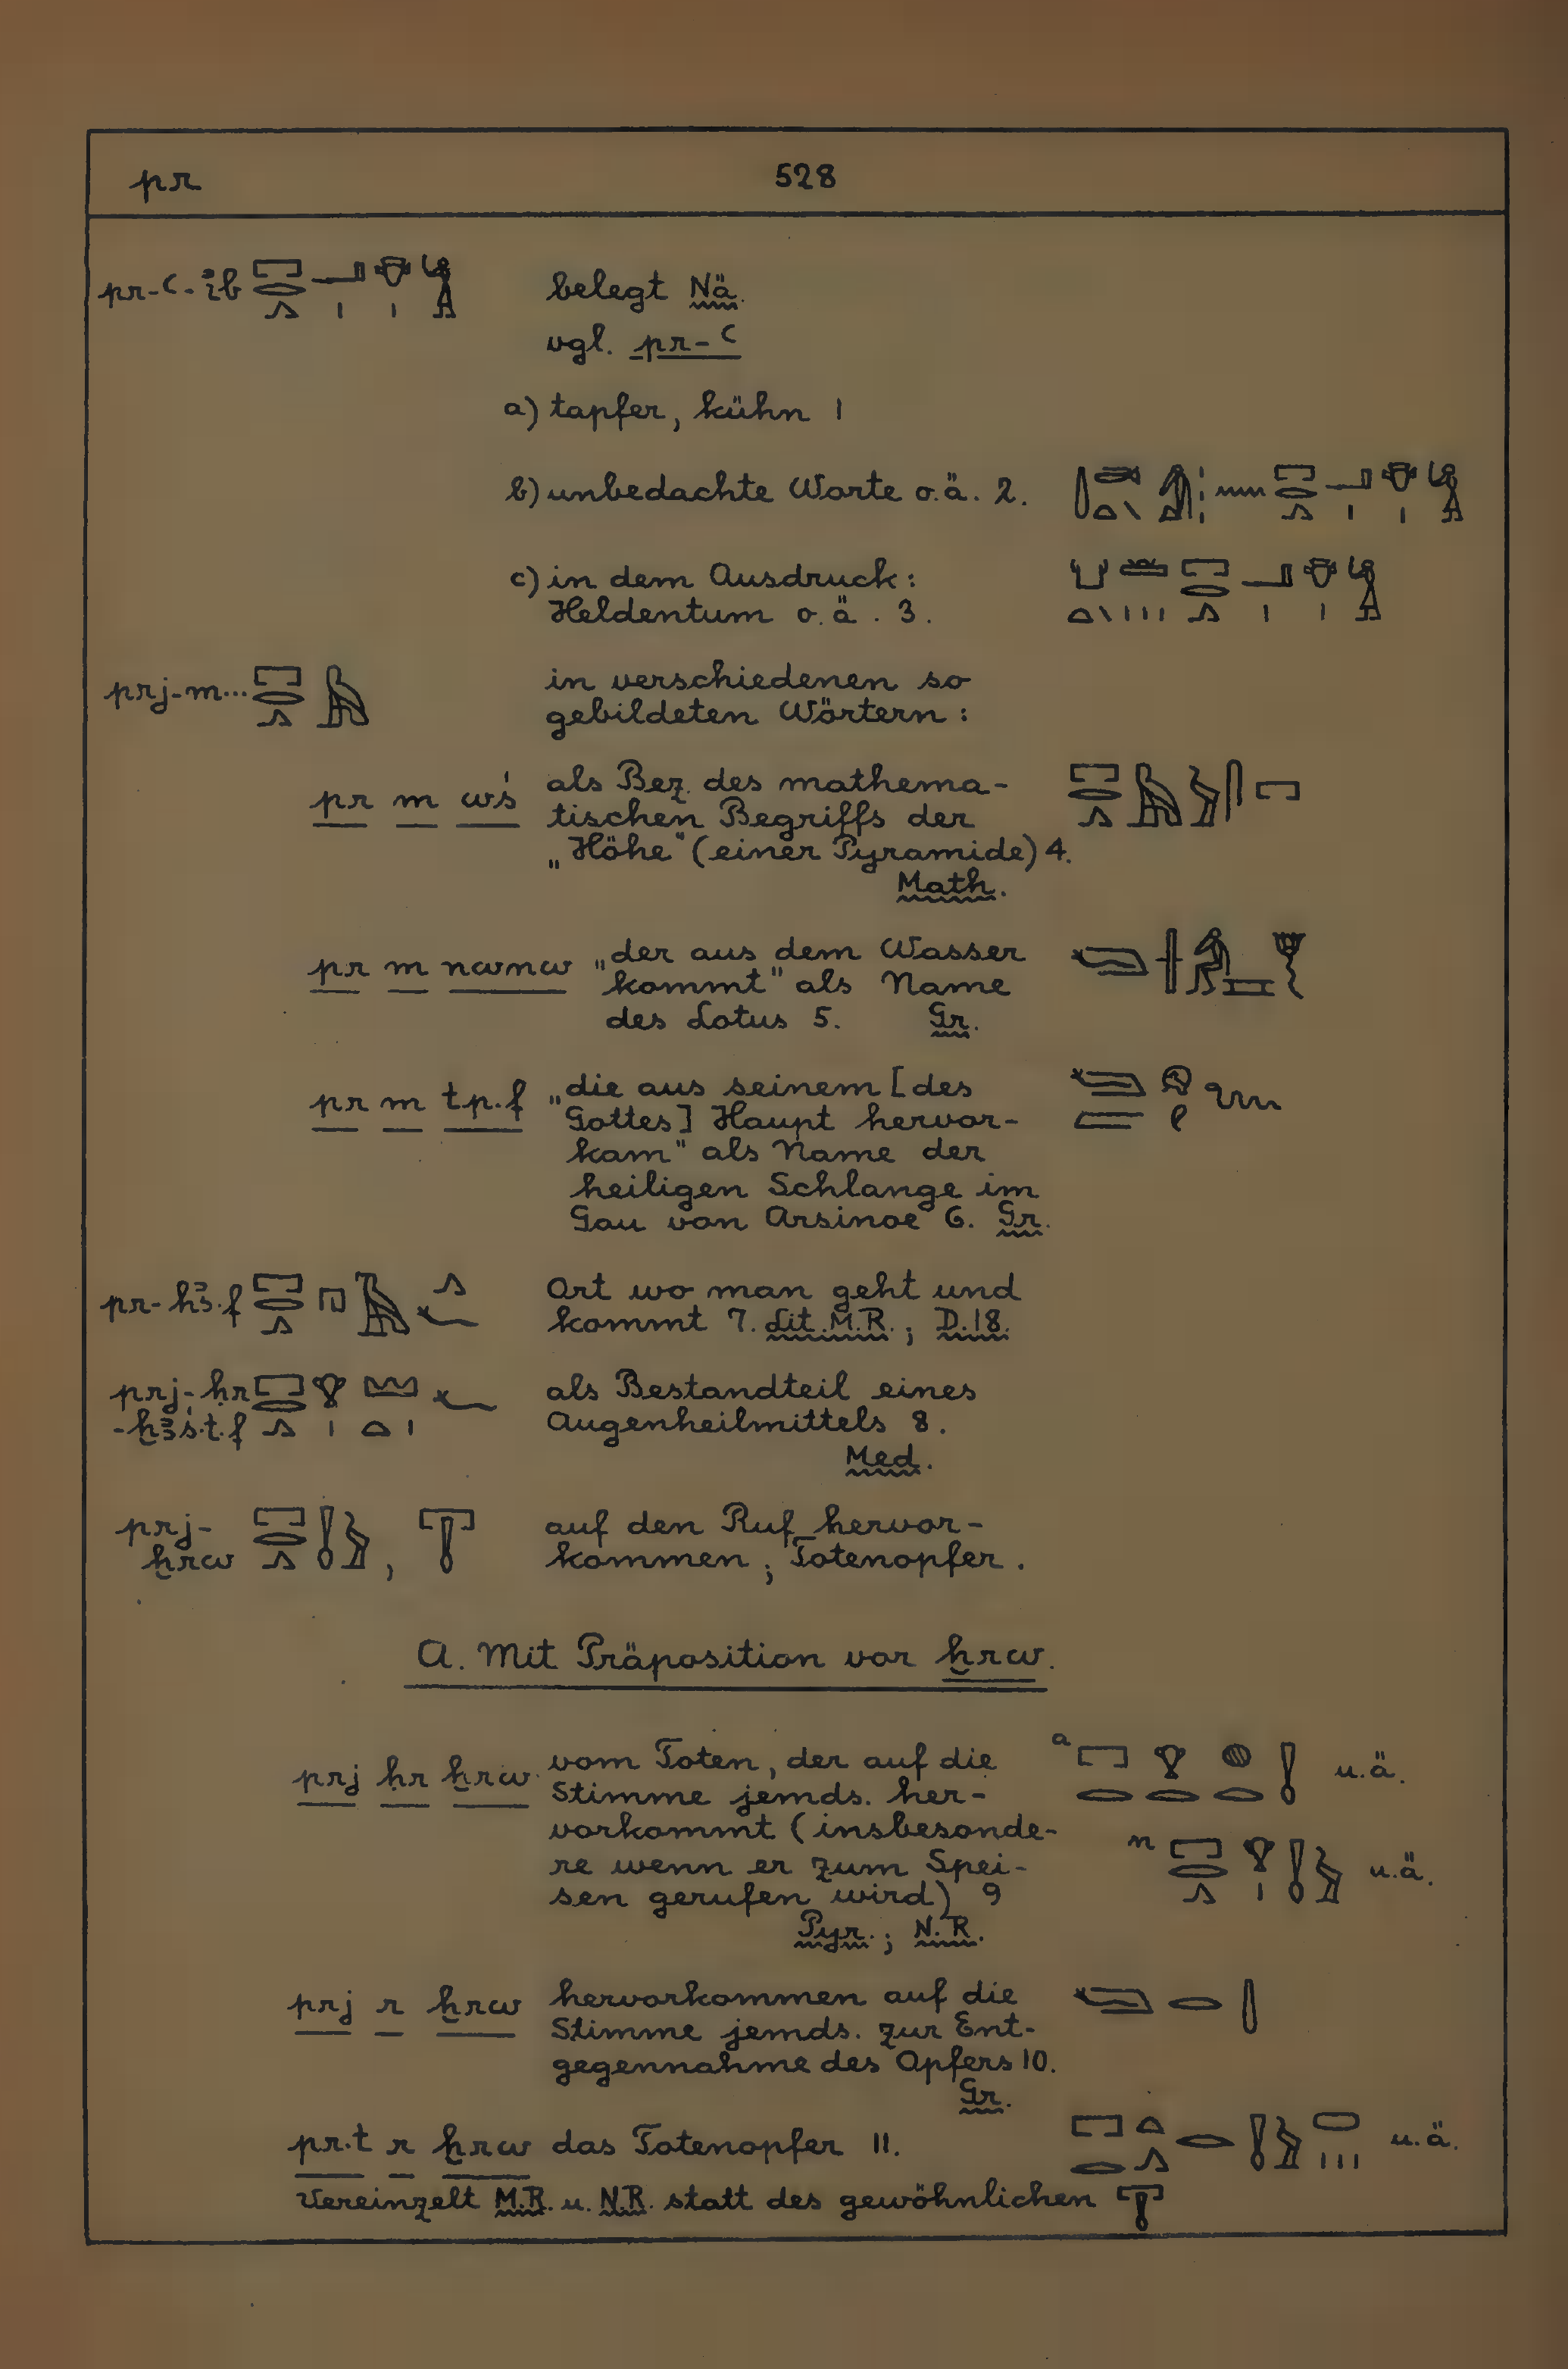 pr 528
pr-ꜥ-ı͗b 𓉐𓂋𓂻𓂝𓏤𓄣𓏤𓀜 belegt Nä.
vgl. pr-ꜥ
a) tapfer, kühn 1
b) unbedachte Worte o.ä. 2.
c) in dem Ausdruck:
Heldentum o.ä. 3.
prj-m... 𓉐𓂋𓂻𓅓 in verschiedenen so
gebildeten Wörtern:
pr m wś als Bez. des mathema-
tischen Begriffs der
„Höhe“ (einer Pyramide) 4.
Math.
pr m nwnw „der aus dem Wasser
kommt“ als Name
des Lotus 5. Gr.
pr m tp.f „die aus seinem [des
Gottes] Haupt hervor-
kam“ als Name der
heiligen Schlange im
Gau von Arsinoe 6. Gr.
pr-hꜣ.f Ort wo man geht und
kommt 7. Lit. M.R.; D.18.
prj-ḥr 𓉐𓂋𓂻𓁷𓏤𓈉𓏏𓏤𓆑 als Bestandteil eines
-ḫꜣś.t.f Augenheilmittels 8.
Med.
prj- auf den Ruf hervor-
ḫrw kommen; Totenopfer.
A. Mit Präposition vor ḫrw.
prj ḥr ḫrw vom Toten, der auf die a u.ä.
Stimme jemds. her-
vorkommt (insbesonde-
re wenn er zum Spei- n u.ä.
sen gerufen wird) 9
Pyr.; N.R.
prj r ḫrw hervorkommen auf die
Stimme jemds. zur Ent-
gegennahme des Opfers 10.
Gr.
pr.t r ḫrw das Totenopfer 11. u.ä.
Vereinzelt M.R. u. N.R. statt des gewöhnlichen